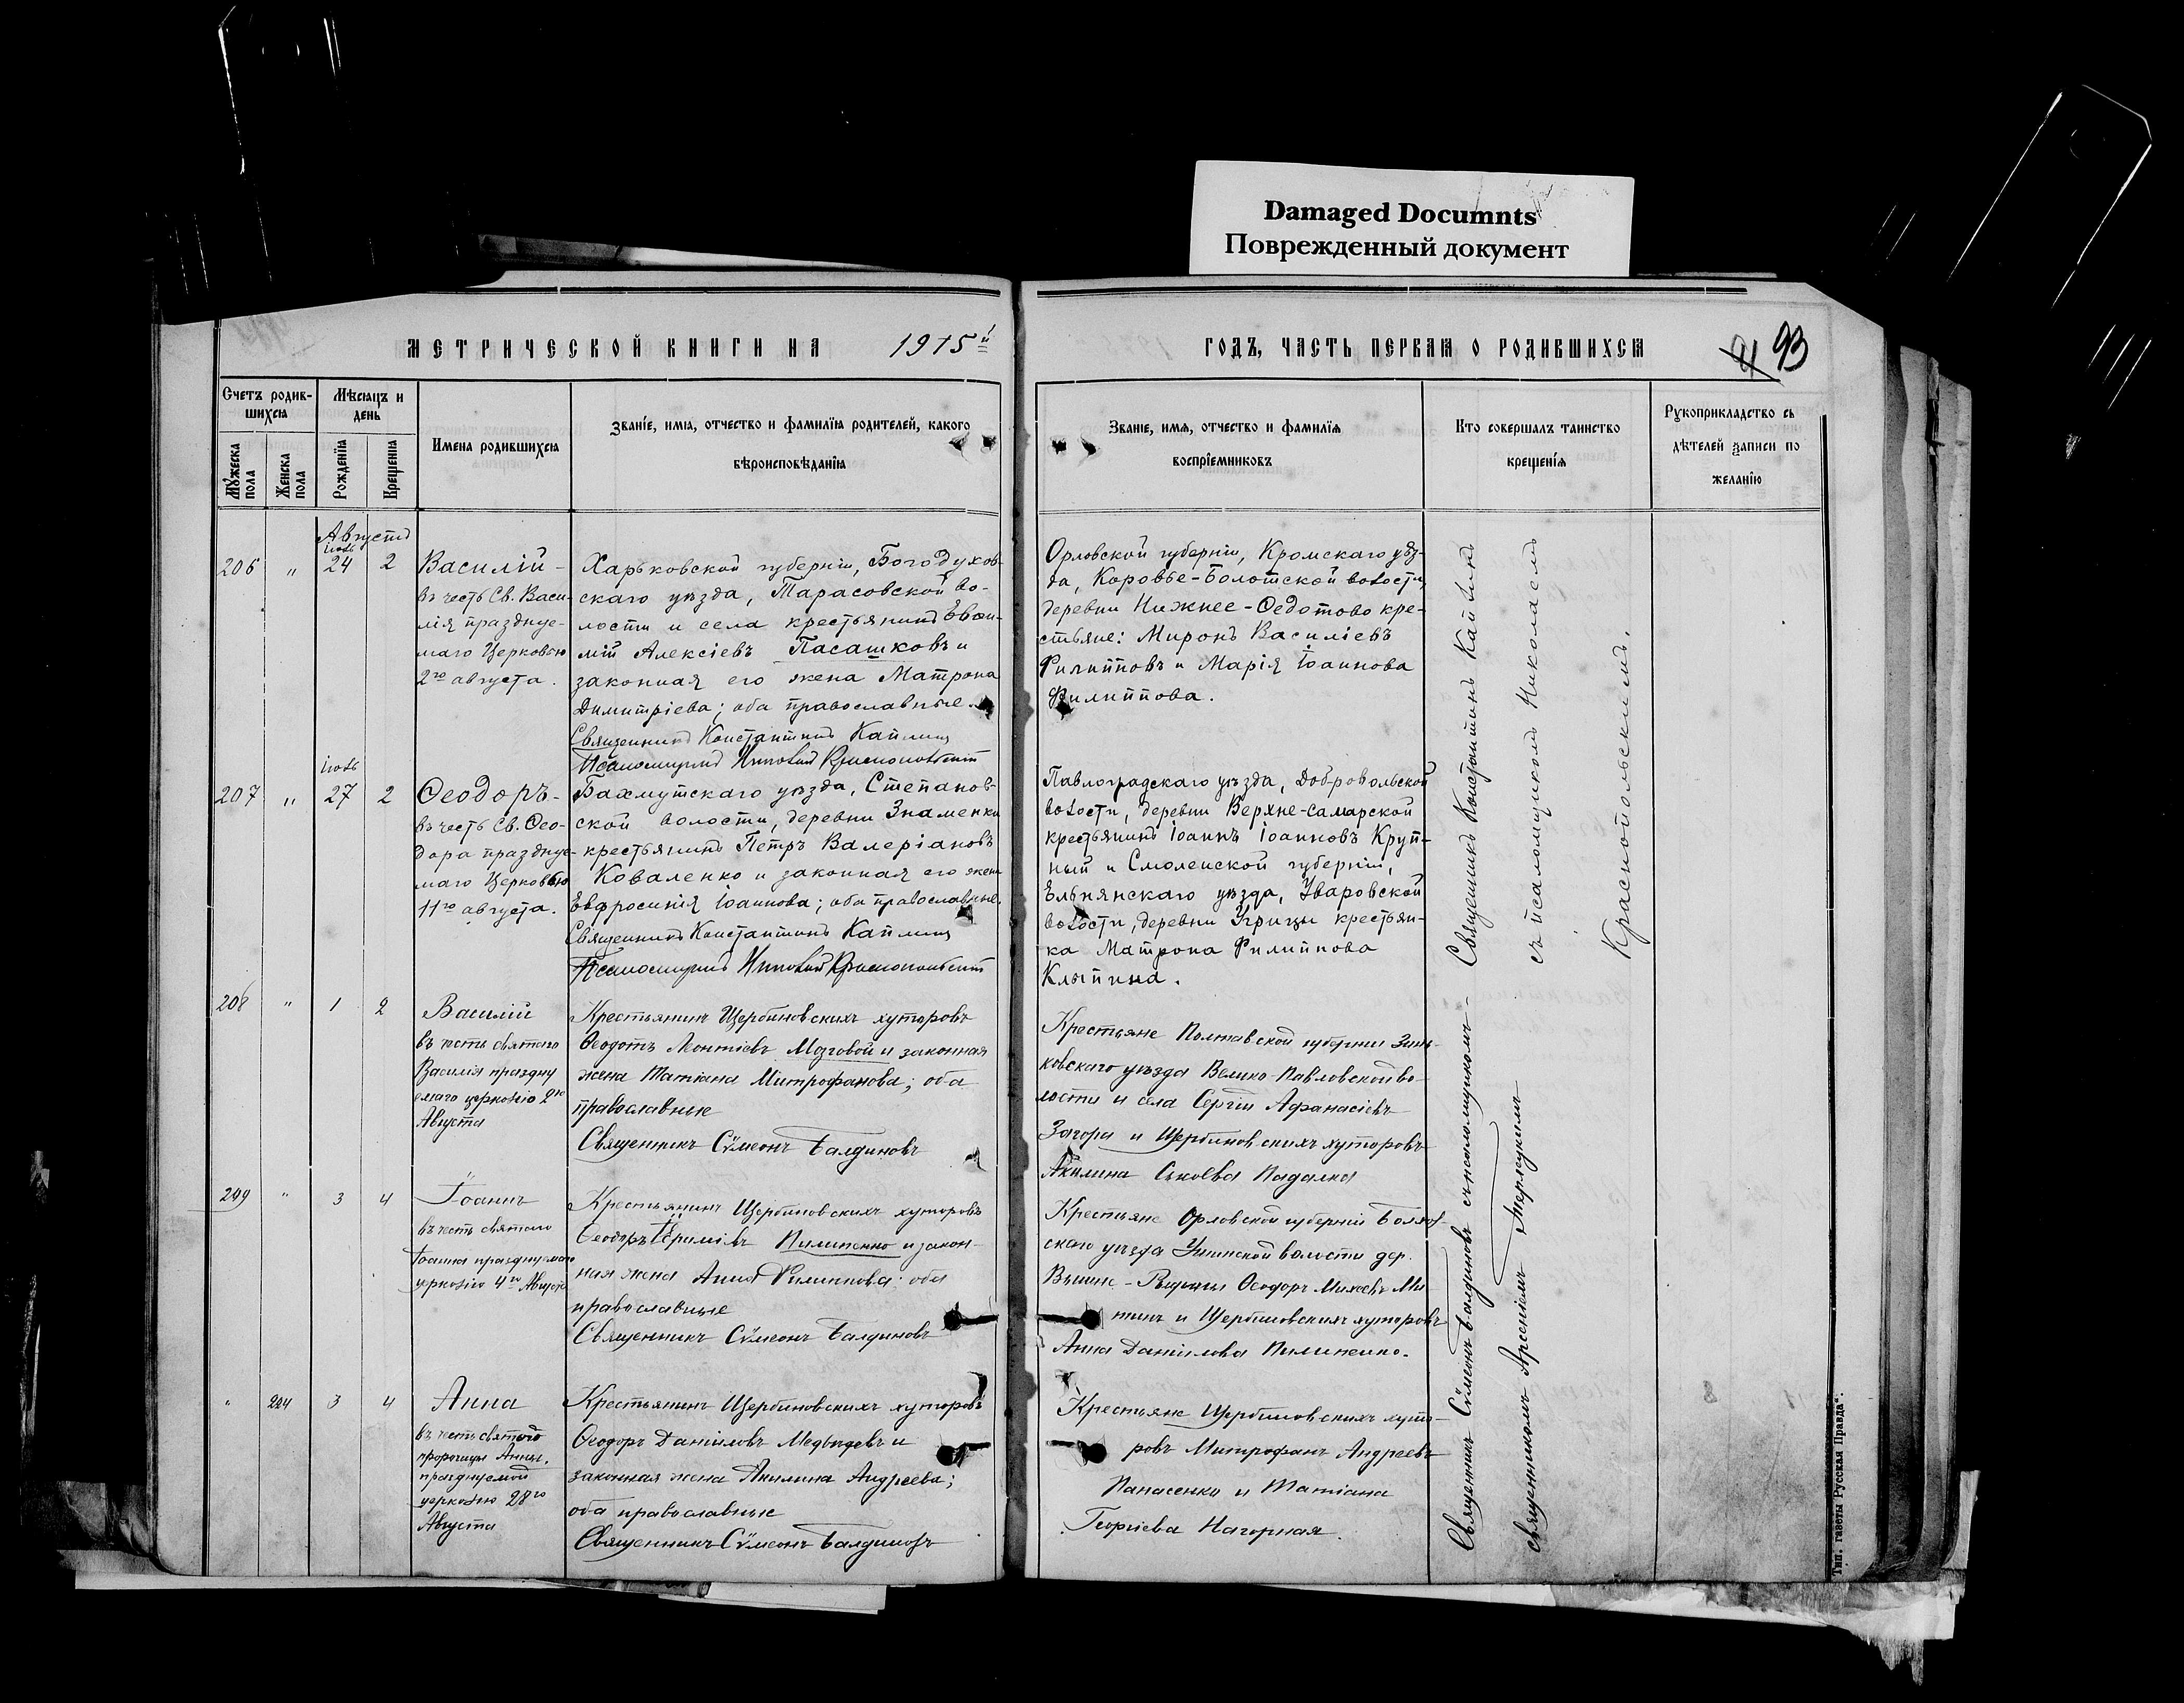 Damaged Documnts
Поврежденный документ
МЕТРИЧЕСКОЙ КНИГИ НА 1915й
ГОДЪ, ЧАСТЬ ПЕРВАЯ О РОДИВШИХСЯ
93
Счетъ родив-
шихся
Мѣсяцъ и
день
Мужеска
пола
Женска
пола
Рожденія
Крещенія
Имена родившихся
Званіе, имя, отчество и фамилія родителей, какого
вѣроисповѣданія
Званіе, имя, отчество и фамилія
воспріемниковъ
Кто совершалъ таинство
крещенія
Рукоприкладство сь
дѣтелей записи по
желанію
Августъ
іюль
206 " 24 2
Василій -
въ честь Св. Васи-
лія празднуе-
маго Церковью
2го августа.
Харьковской губерніи, Богодухов-
скаго уѣзда, Тарасовской во-
лости и села крестьянинъ Евѳи-
мій Алексіевъ Пасашковъ и
законная его жена Матрона
Димитріева; оба православные.
Священникъ Константинъ Каплинъ
Орловской губерніи, Кромскаго уѣз-
да, Коровье-Болотской волости,
деревни Нижнее-Ѳедотово кре-
стьяне: Миронъ Василіевъ
Филипповъ и Марія Іоаннова
Филиппова.
іюль
207 " 27 2
Ѳеодоръ -
въ честь Св. Ѳео-
дора празднуе-
маго Церковью
11го августа.
Бахмутскаго уѣзда, Степанов-
ской волости, деревни Знаменки
крестьянинъ Петръ Валеріановъ
Коваленко и законная его жена
Евфросинія Іоаннова; оба православные.
Священникъ Константинъ Каплинъ
Павлоградскаго уѣзда, Добровольской
волости, деревни Верхне-Самарской
крестьянинъ Іоаннъ Іоанновъ Круп-
ный и Смоленской губерніи,
Ельнянскаго уѣзда, Уваровской
волости, деревни Угрицы крестьян-
ка Матрона Филиппова
Клыпина.
208 " 1 2
Василій
въ честь святаго
Василія праздну
емаго церковію 2го
Августа
Крестьянинъ Щербиновскихъ хуторовъ
Ѳеодотъ Леонтіевъ Мозговой и законная
жена Татіана Митрофанова; оба
православные
Священникъ Сѵмеонъ Балдиновъ
Крестьяне Полтавской губерніи Зинь-
ковскаго уѣзда Велико-Павловской во-
лости и села Сергій Афанасіевъ
Загора и Щербиновскихъ хуторовъ
Акилина Падалка
209 " 3 4
Іоаннъ
въ честь святаго
Іоанна празднуемаго
церковію 4го Августа
Крестьянинъ Щербиновскихъ хуторовъ
Ѳеодоръ Пилипенко и закон-
ная жена Анна Филиппова; оба
православные
Священникъ Сѵмеонъ Балдиновъ
Крестьяне Орловской губерніи Болхов-
скаго уѣзда волости дер.
Ѳеодоръ Михеевъ Ми
тинъ и Щербиновскихъ хуторовъ
Анна Даніилова Пилипенко.
" 204 3 4
Анна
въ честь святой
пророчицы Анны,
празднуемой
церковію 28го
Августа
Крестьянинъ Щербиновскихъ хуторовъ
Ѳеодоръ Даніиловъ Медвѣдевъ и
законная жена Акилина Андреева;
оба православные
Священникъ Сѵмеонъ Балдиновъ
Крестьяне Щербиновскихъ хуто-
ровъ Митрофанъ Андреевъ
Панасенко и Татіана
Георгіева Нагорная.
Священникъ Константинъ Каплинъ
съ псаломщикомъ Николаемъ
Краснопольскимъ.
Священникъ Сѵмеонъ Балдиновъ съ псаломщикомъ-
священникомъ Арсеніемъ
Тип. газеты Русская Правда".